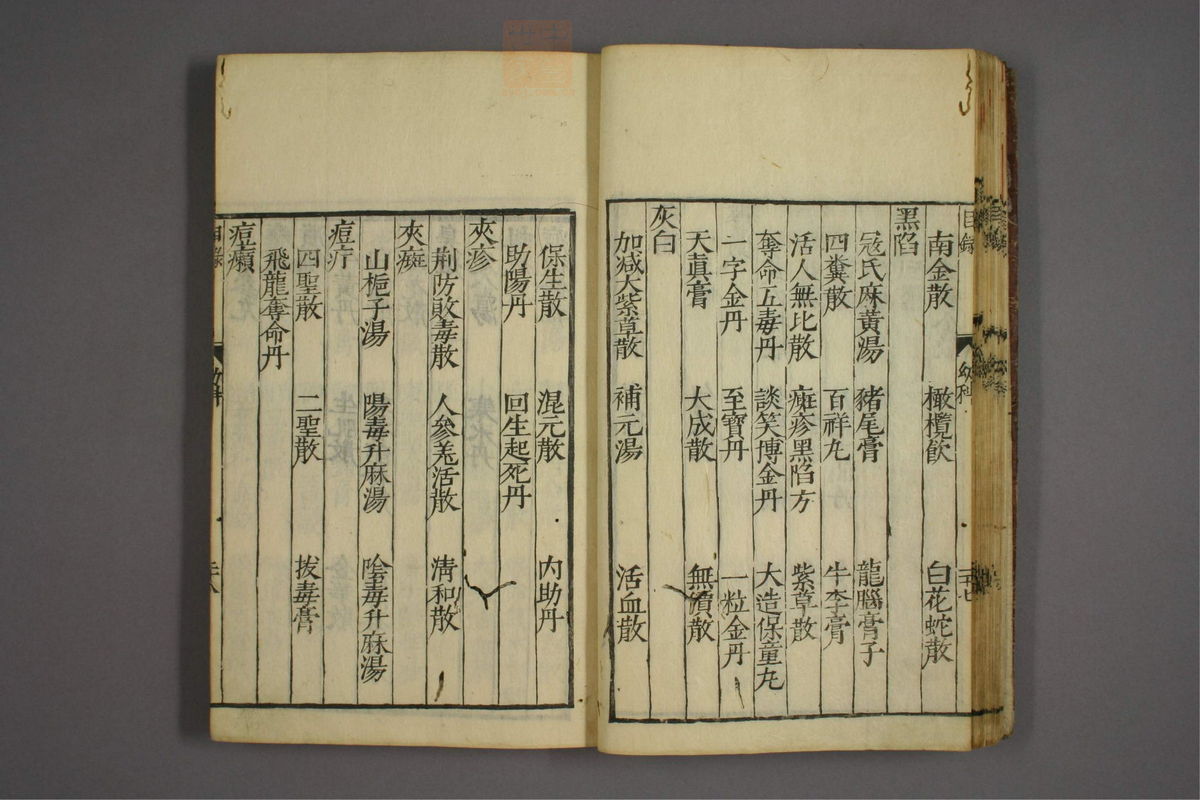 目錄
南金散 橄欖飲 白花蛇散
黑陷
冦氏麻黃湯 豬尾膏 龍腦膏子
四糞散 百祥丸 牛李膏
活人無比散 癍疹黑陷方 紫草散
奪命五毒丹 談笑博金丹 大造保童丸
一字金丹 至寶丹 一粒金丹
天真膏 大成散 無價散
灰白
加减大紫草散 補元湯 活血散
保生散 混元散 內助丹
助陽丹 回生起死丹
夾疹
荆防敗毒散 人參羗活散 淸和散
夾癍
山梔子湯 陽毒升麻湯 陰毒升麻湯
痘疔
四聖散 二聖散 拔毒膏
飛龍奪命丹
痘癩
目錄